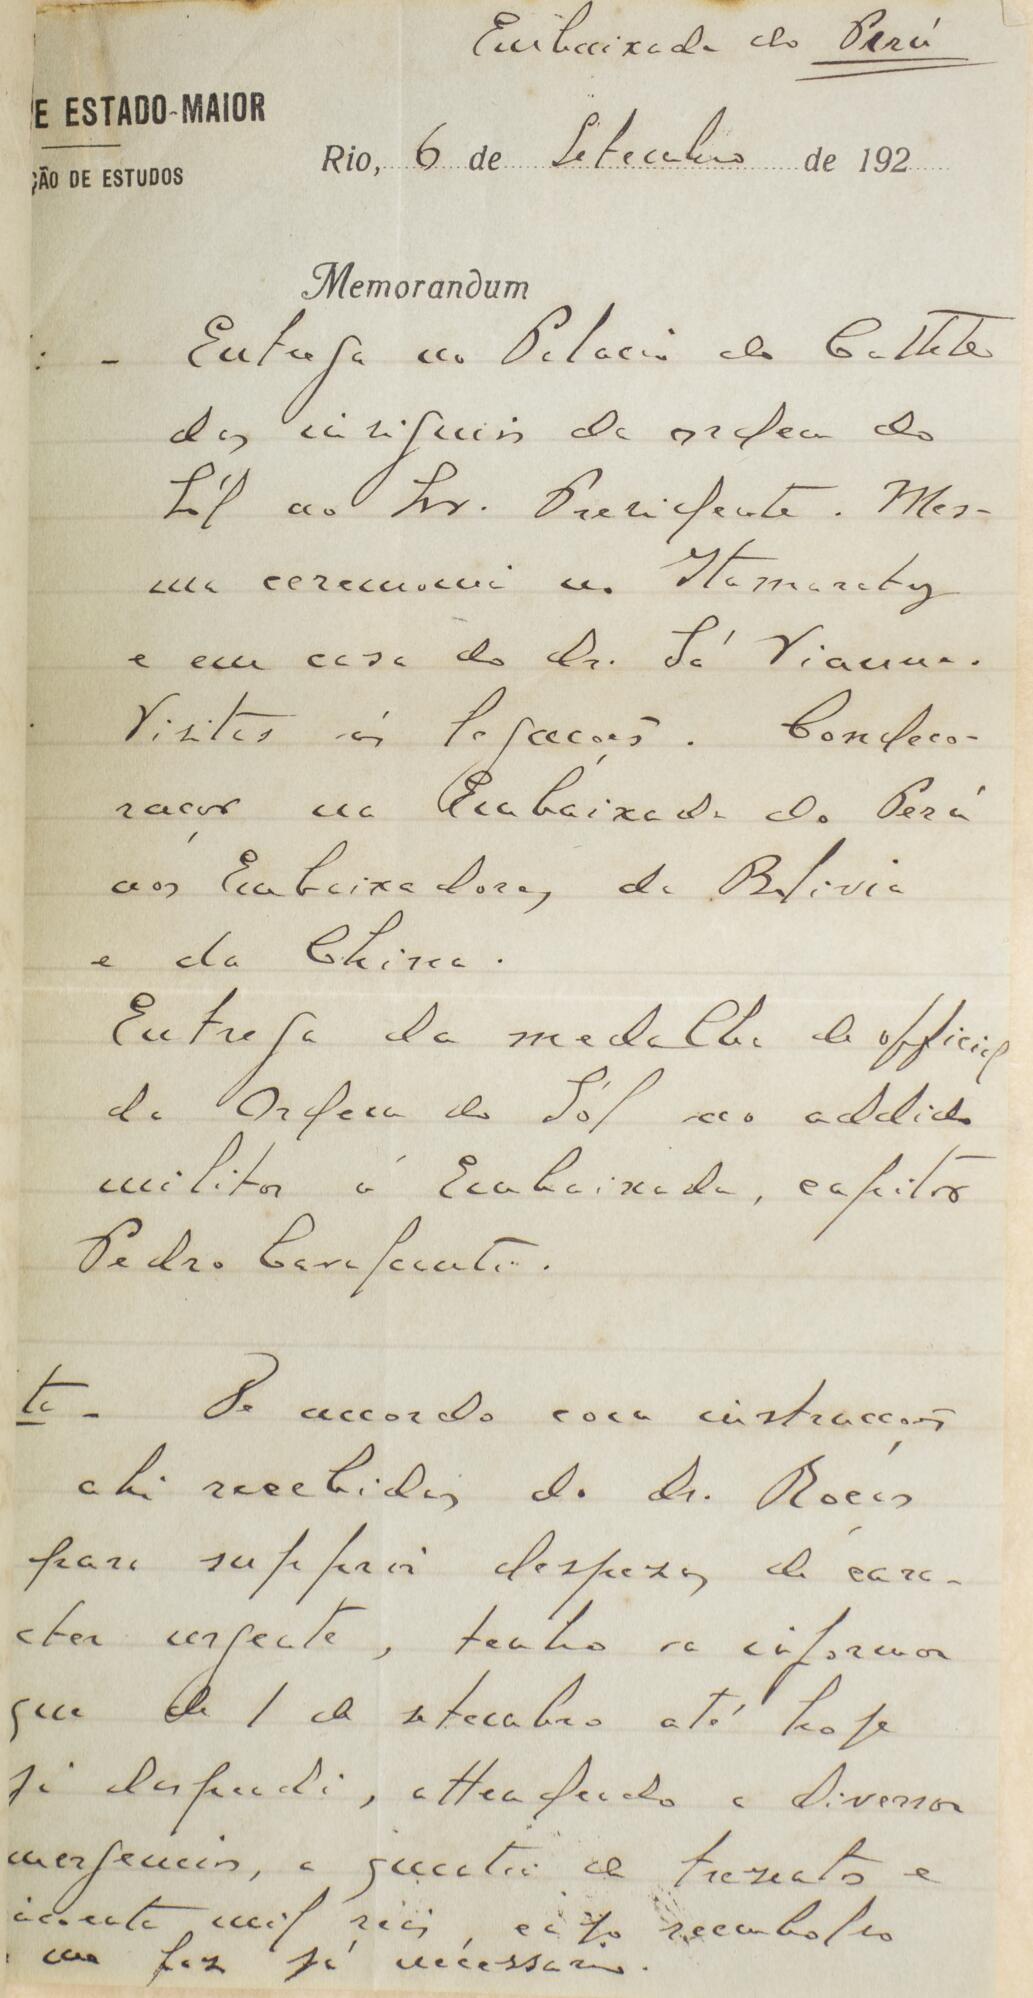 Embaixada do Perú
E ESTADO-MAIOR
ÇÃO DE ESTUDOS
Rio, 6 de Setembro de 192
Memorandum
: - Entrega no Palacio do Cattete
das insignias da ordem do
Sól ao Snr. Presidente. Mes-
ma ceremonia no Itamaraty
e em casa do dr. Sá Vianna.
Visitas ás legações. Condeco-
rações na Embaixada do Perú
aos Embaixadores da Bolivia
e da China.
Entrega da medalha de official
da Ordem do Sól ao addido
militar á Embaixada, capitão
Pedro Cavalcanti.
te - De accordo com instrucções
ahi recebidas do dr. Rocas
para supprir despezas de cara-
cter urgente, tenho a informar
que de 1 de setembro até hoje
já despendi, attendendo a diversas
mergencias, a quantia de trezentos e
incoenta mil reis, cujo reembolso
me faz já necessario.